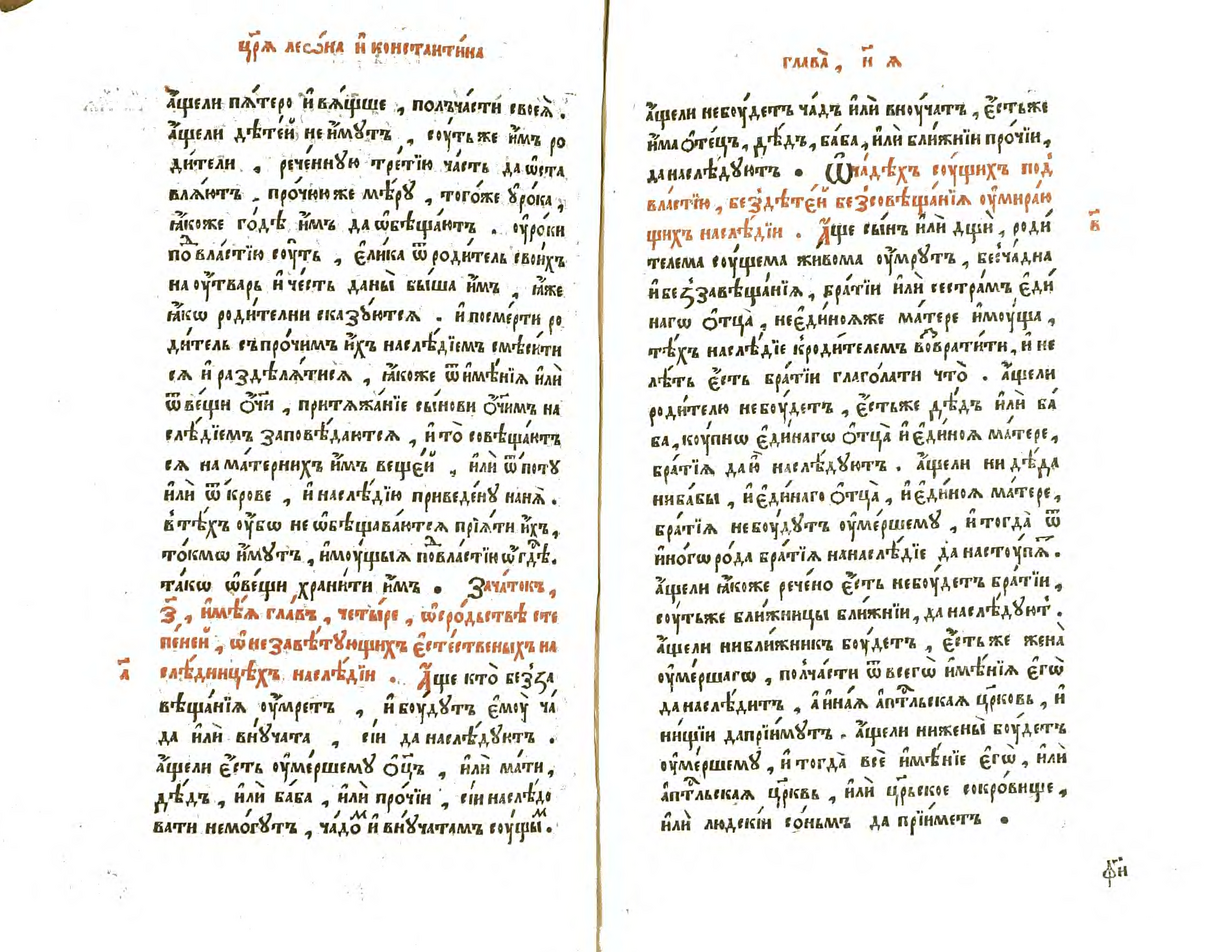 цр҃ѧ леѡ́на и҆ константи́на
а҆́щели пѧ́теро и҆ вѧ́щше , полъча́сти своеѧ̀ .
а҆́щели дѣте́й не и҆́мутъ , соу́тьже и҆̀мъ ро
ди́тели , рече́нную тре́тїю ча́сть да ѡ҆ста
влѧ́ютъ . про́чюю же мѣ́ру , того́же ᲂу҆ро́ка ,
ꙗ҆́коже го́дѣ и҆̀мъ да ѡ҆бѣща́ютъ . ᲂу҆ро́ки
по́ вла́стїю соу́ть , є҆ли́ка ѿ роди́тель свои́хъ
на ᲂу҆́тварь и҆ че́сть даны̀ бы́ша и҆̀мъ , ꙗ҆́же
ꙗ҆́кѡ роди́телни сказу́ютсѧ . и҆ посме́рти ро
ди́тель съпро́чимъ и҆́хъ наслѣ́дїемъ смѣси́ти
сѧ и҆ раздѣлѧ́тисѧ , ꙗ҆́коже ѿ и҆мѣ́нїѧ и҆лѝ
ѿ ве́щи ѻ҆́ч҃и , притѧжа́нїе сы́нови ѻ҆́ч҃имъ на
слѣ́дїемъ заповѣ́даютсѧ , и҆ то̀ совѣща́ютъ
сѧ на ма́тернихъ и҆̀мъ веще́й , и҆лѝ ѿ поту
и҆лѝ ѿ кро́ве , и҆ наслѣ́дїю приведе́ну нанѧ̀ .
в тѣ́хъ ᲂу҆́бѡ не ѡ҆бѣщава́ютсѧ прїѧ́ти и҆́хъ ,
то́кмѡ и҆́мутъ , и҆мᲂу́щыѧ повла́стїи ѡ҆гдѣ̀ .
та́кѡ ѡ҆ ве́щи храни́ти и҆̀мъ . Зача́токъ ,
з҃ , и҆мѣ́ѧ гла́въ , четы́ре , ѡ҆ сро́дьствѣ сте
пе́ней , ѡ҆ незавѣ́тующихъ є҆сте́ственыхъ на
слѣ́дницѣхъ наслѣ́дїи . А҆́ще кто̀ безза
а҃
вѣща́нїѧ ᲂу҆́мретъ , и҆ боу́дутъ є҆моу̀ ча́
да и҆лѝ вну́чата , сїи да наслѣ́дуютъ .
а҆́щели є҆́сть ᲂу҆ме́ршему ѻ҆ц҃ъ , и҆лѝ ма́ти ,
дѣ́дъ , и҆лѝ ба́ба , и҆лѝ про́чїи , сїи наслѣ́до
вати немо́гутъ , ча́дом и҆ вну́чатам соу́щым .
глава̀ , н҃ ѧ
а҆́щели небоу́детъ ча́дъ и҆лѝ вноу́чатъ , є҆́стьже
и҆́ма ѻ҆те́цъ , дѣ́дъ , ба́ба , и҆лѝ бли́жнїи про́чїи ,
да наслѣ́дуютъ . Ѿ ча́дѣхъ соу́щихъ под̾
вла́стїю , бездѣте́й безсовѣща́нїѧ ᲂу҆мира́ю
щихъ наслѣ́дїи . А҆́ще сы́нъ и҆лѝ дщѝ , роди́
в҃
телема соу́щема жи́вома ᲂу҆́мрутъ , бесча́дна
и҆ беззавѣща́нїѧ , бра́тїи и҆лѝ сестра́мъ є҆ди́
нагѡ ѻ҆тца̀ , неє҆ди́ноѧже ма́тере и҆мᲂу́ща ,
тѣ́хъ наслѣ́дїе кроди́телем вᲂврати́ти , и҆ не
лѣ́ть є҆́сть бра́тїи глаго́лати что̀ . а҆́щели
роди́телю небоу́детъ , є҆́стьже дѣ́дъ и҆лѝ ба́
ба , коу́пнѡ є҆ди́нагѡ ѻ҆тца̀ и҆ є҆ди́ноѧ ма́тере ,
бра́тїѧ да ю҆̀ наслѣ́дуютъ . а҆́щели ни дѣ́да
ни ба́бы , и҆ є҆ди́наго ѻ҆тца̀ , и҆ є҆ди́ноѧ ма́тере ,
бра́тїѧ небоу́дутъ ᲂу҆ме́ршему , и҆ тогда̀ ѿ
и҆но́гѡ ро́да бра́тїѧ на наслѣ́дїе да настоу́пѧт .
а҆́щели ꙗ҆́коже рече́но є҆́сть небоу́детъ бра́тїи ,
соу́тьже бли́жницы бли́жнїи , да наслѣ́дуют .
а҆́щели ни бли́жникъ боу́детъ , є҆́сть же жена̀
ᲂу҆ме́ршагѡ , полча́сти ѿ всегѡ̀ и҆мѣ́нїѧ є҆гѡ̀
да наслѣ́дитъ , а҆ и҆на́ѧ а҆пⷭ҇льскаѧ цр҃ковь , и҆
ни́щїи да прїи́мутъ . а҆́щели ни жены̀ боу́детъ
ᲂу҆ме́ршему , и҆ тогда̀ всѐ и҆мѣ́нїе є҆гѡ̀ , и҆лѝ
а҆пⷭ҇льскаѧ цр҃квь , и҆лѝ цр҃ьское сокро́вище ,
и҆лѝ людскі́и со́ньмъ да прїи́метъ .
фн҃